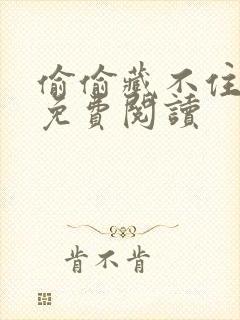 偷偷藏不住
免費閱讀
肯不肯